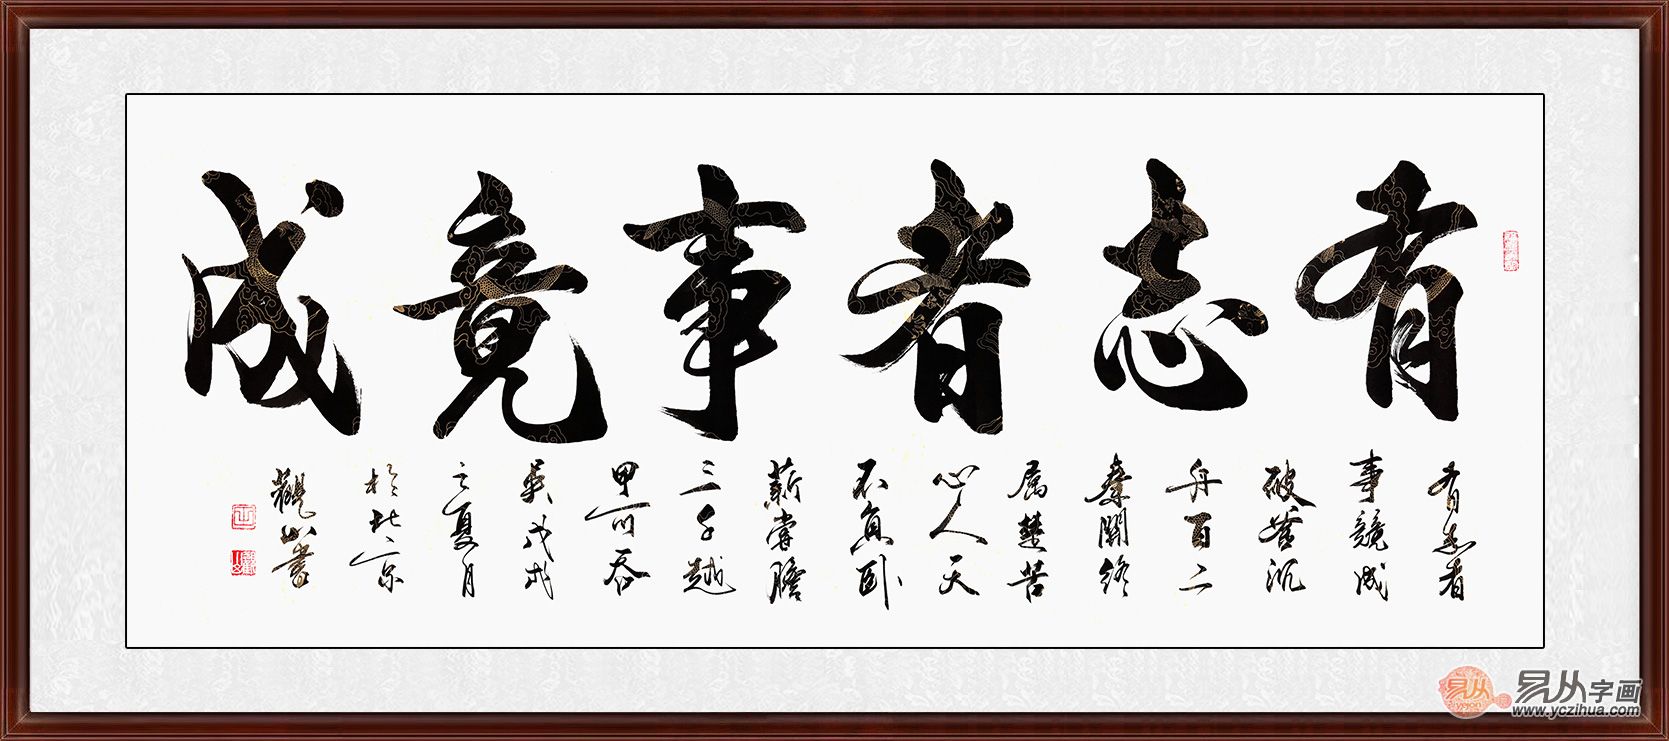 有志者事竟成
有志者
事竟成
破釜沉
舟百二
秦關終
属楚苦
心人天
不負卧
薪嘗膽
三千越
甲可吞
吴戊戌
之夏月
於北京
觀山書
易从
yejon
易从字画
www.yczihua.com